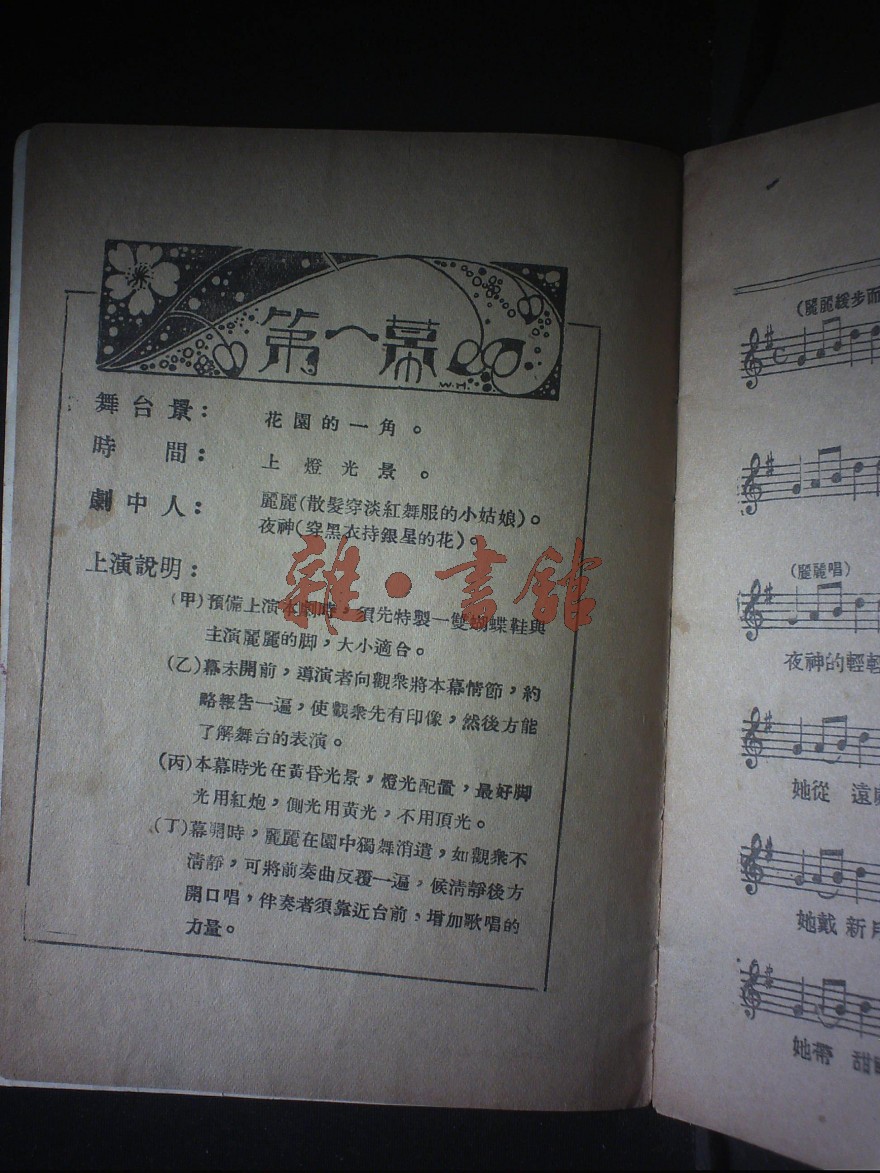 第一幕
W.H.
舞台景： 花園的一角。
時間： 上燈光景。
劇中人： 麗麗(散髮穿淡紅舞服的小姑娘)。
夜神(穿黑衣持銀星的花)。
上演說明：
(甲)預備上演本劇時，須先特製一雙蝴蝶鞋與
主演麗麗的脚，大小適合。
(乙)幕未開前，導演者向觀衆將本幕情節，約
略報告一遍，使觀衆先有印像，然後方能
了解舞台的表演。
(丙)本幕時光在黃昏光景，燈光配置，最好脚
光用紅炮，側光用黃光，不用頂光。
(丁)幕開時，麗麗在園中獨舞消遣，如觀衆不
清靜，可將前奏曲反覆一遍，候清靜後方
開口唱，伴奏者須靠近台前，增加歌唱的
力量。
雜·書館
(麗麗緩步而
(麗麗唱)
夜神的輕輕
她從 遠
她戴 新月
她帶 甜